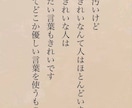 汚いけど
きれいなんて人はほとんどい
きれいな人は
たい言葉もきれいです
てどこか優しい言葉を使うも